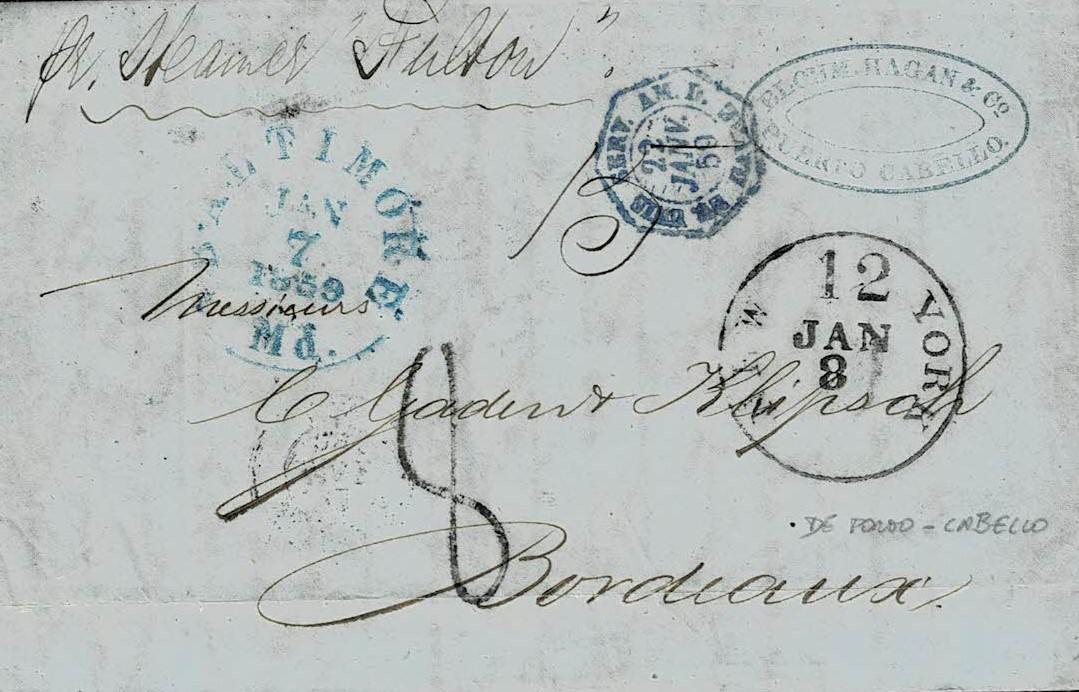 pr. Steamer "Fulton".
BLOHM. HAGAN & Cº
PUERTO CABELLO.
SERV. AM.
22
JANV.
59
BALTIMORE
JAN
7
1859
Md.
12
JAN
8
YORK
Messieurs
C Gaden & Klipsch
8
DE PORTO-CABELLO
Bordeaux.